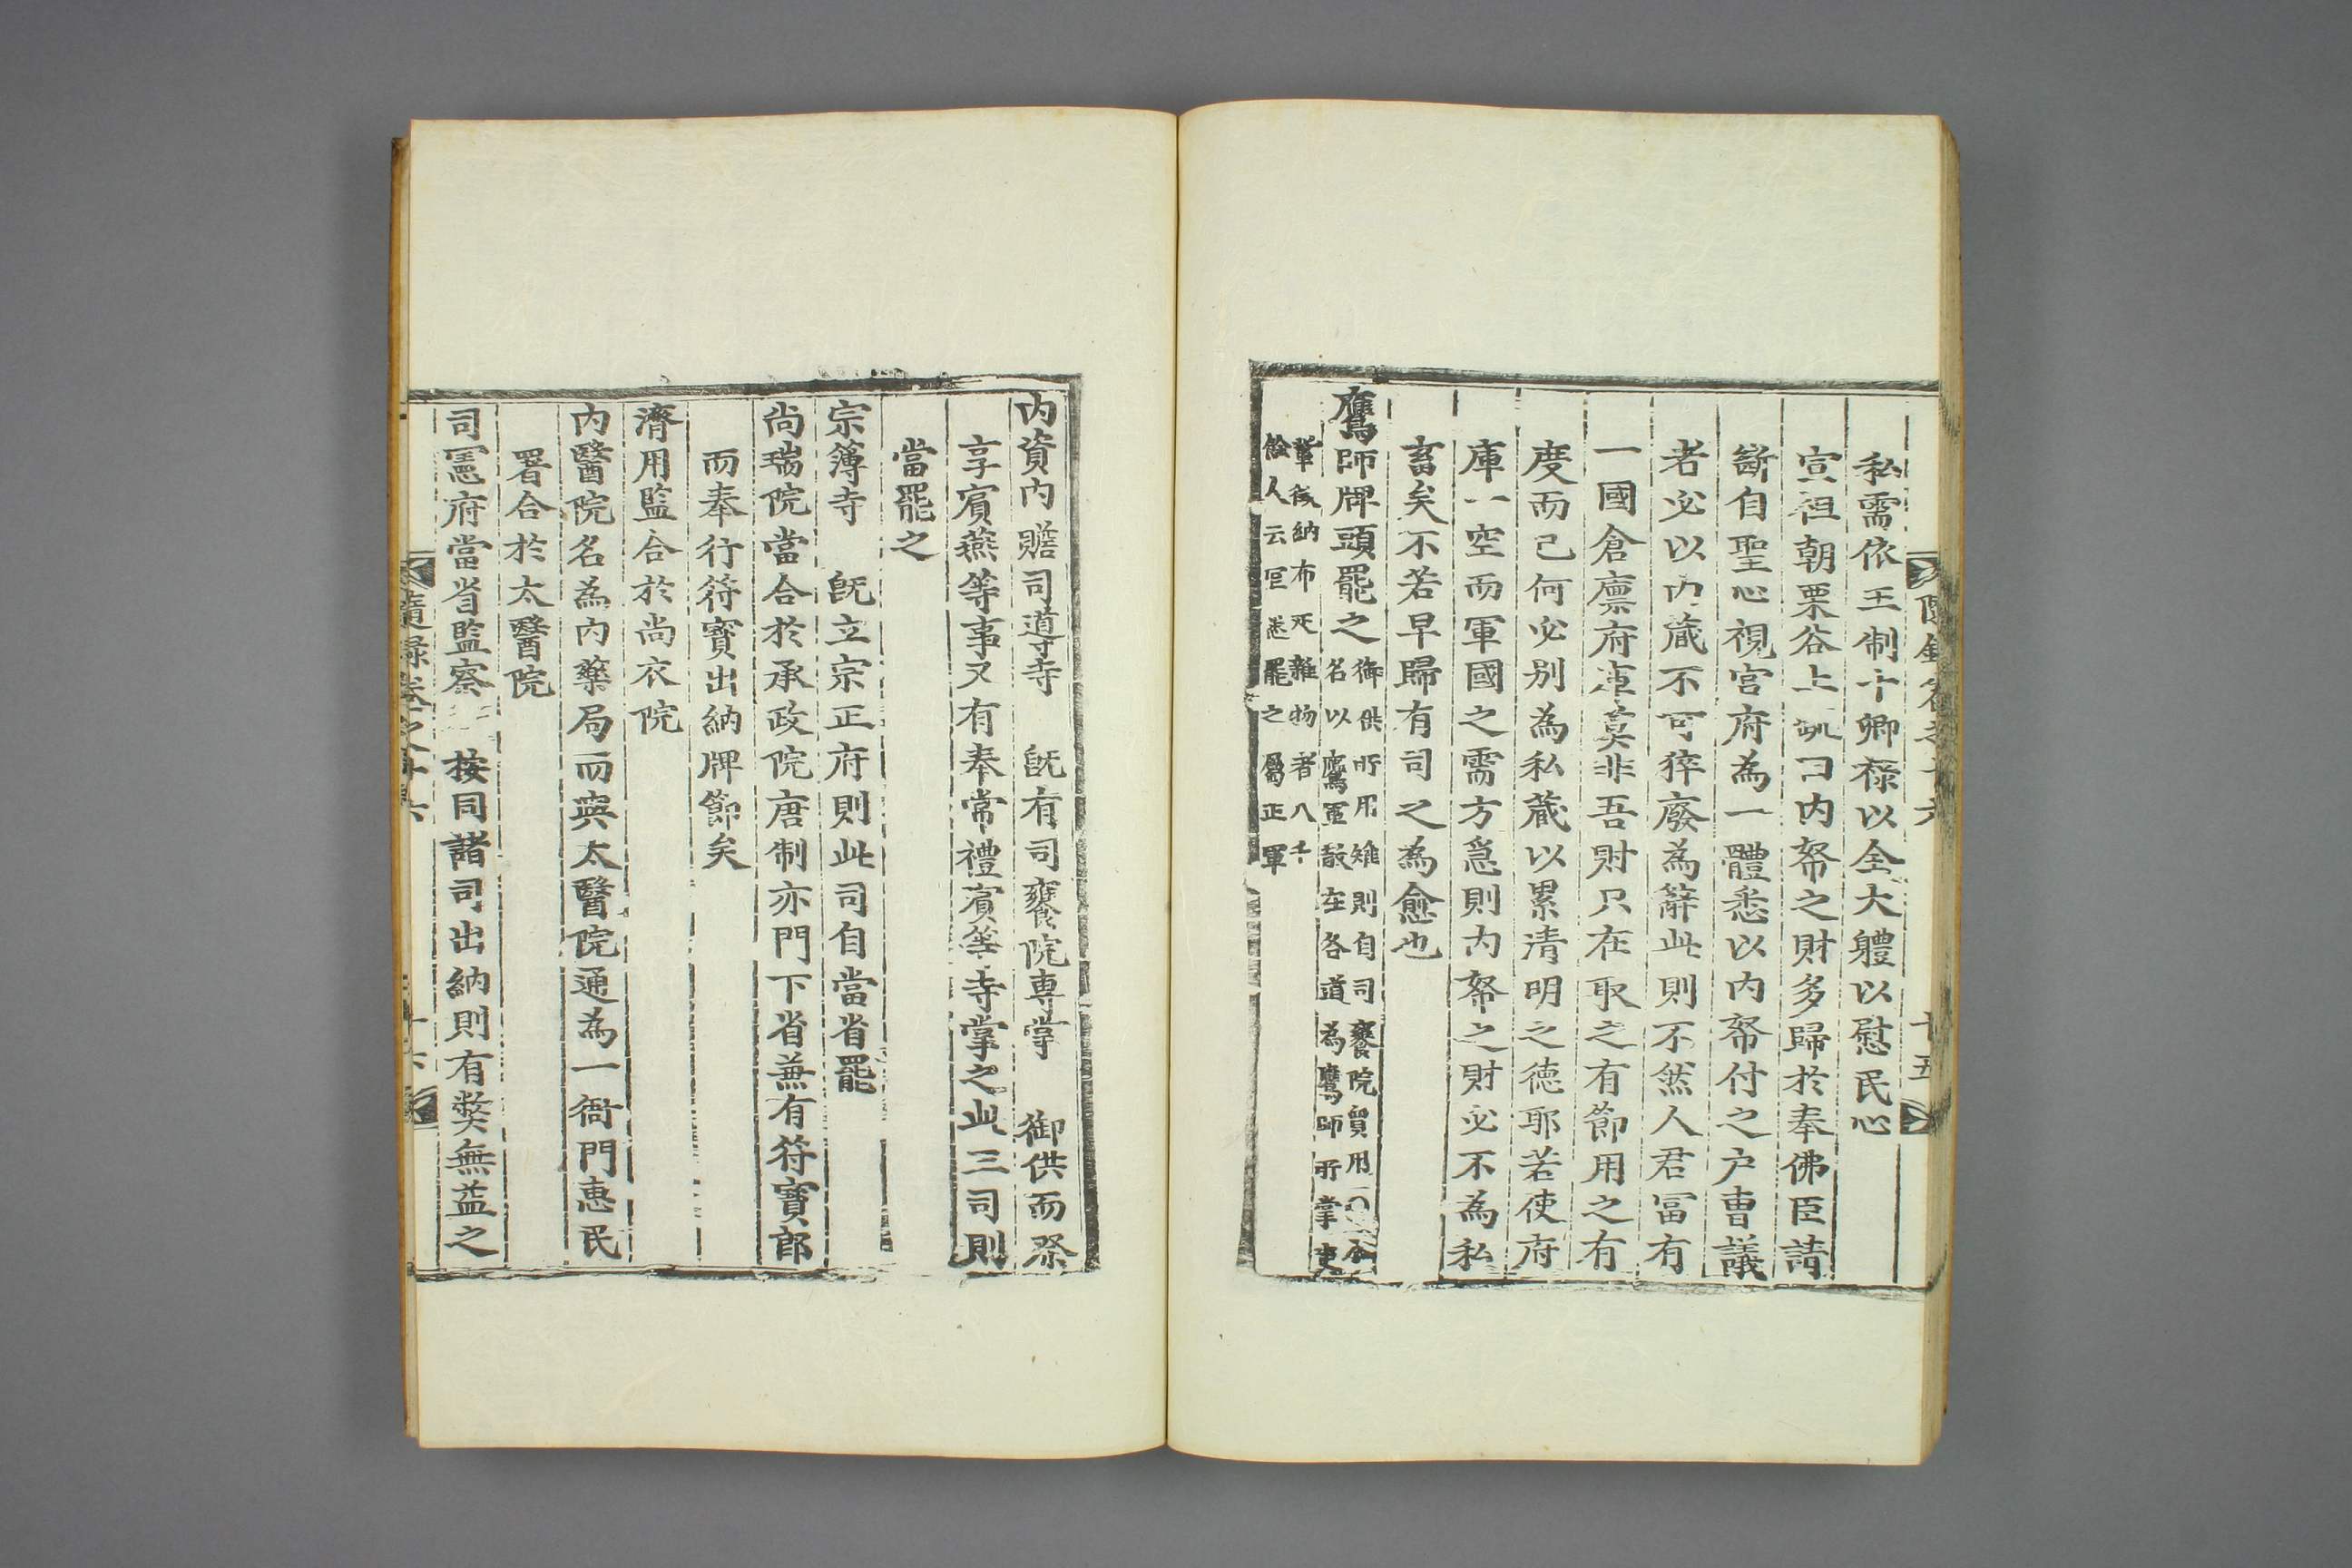 私需依王制十卿祿以全大體以慰民心
宣祖朝栗谷上訊曰内帑之財多歸於奉佛臣請
斷自聖心視宮府為一體悉以内帑付之户曹議
者必以内蔵不可猝廢為辭此則不然人君富有
一國倉廩府庫莫非吾財只在取之有節用之有
度而已何必别為私蔵以累清明之徳耶若使府
庫一空而軍國之需方急則内帑之財必不為私
畜矣不若早歸有司之為愈也
鷹師牌頭罷之
御供所用雉則自司饔院貿用〇今
名以鷹軍散在各道為鷹師所掌吏
輩徵納布疋雜物者八千
餘人云宜悉罷之屬正軍
隨錄卷之十六
十五
内資内贍司䆃寺 旣有司饔院専掌 御供而祭
享賓燕等事又有奉常禮賓等寺掌之此三司則
當罷之
宗簿寺 旣立宗正府則此司自當省罷
尚瑞院當合於承政院唐制亦門下省兼有符寶郎
而奉行符寶出納牌節矣
濟用監合於尚衣院
内醫院名為内藥局而與太醫院通為一衙門惠民
署合於太醫院
司憲府當省監察 按同諸司出納則有弊無益之
隨錄卷之十六
十六